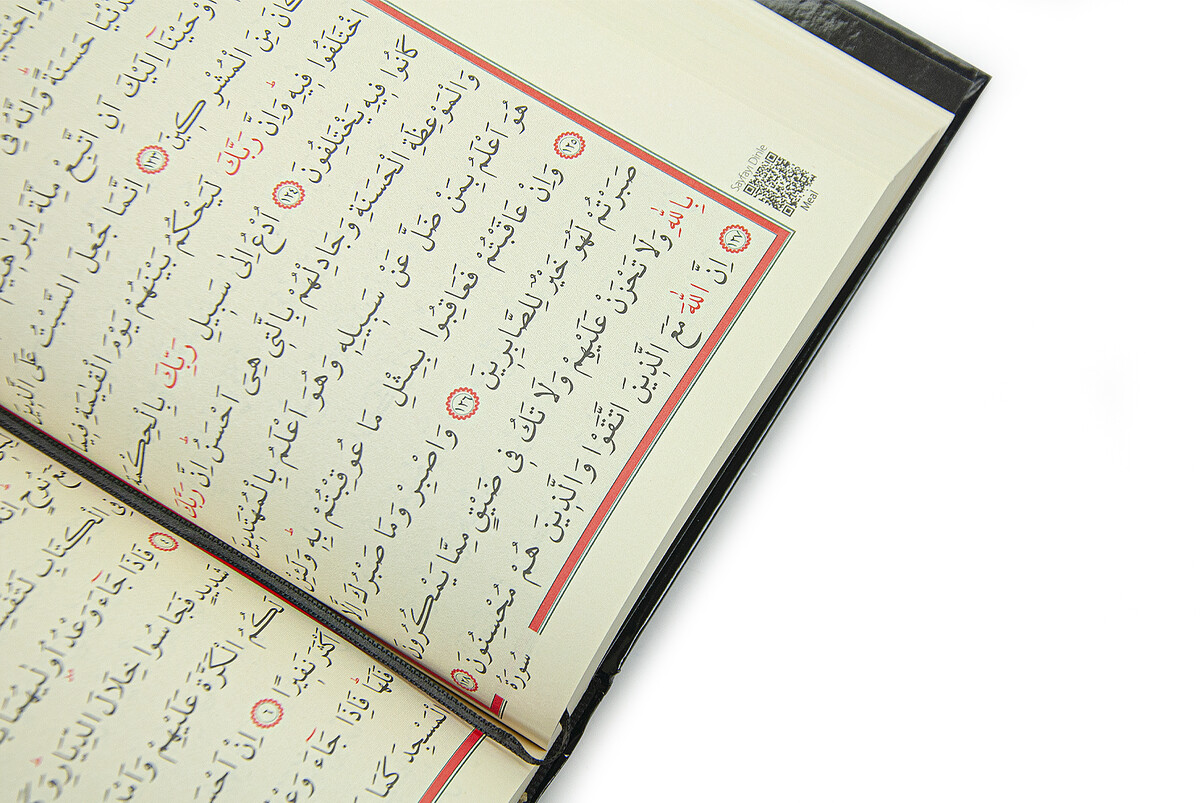 الدُّنْيَا حَسَنَةً وَاِنَّهُ فِى
اَوْحَيْنَا اِلَيْكَ اَنِ اتَّبِعْ مِلَّةَ اِبْرٰهِيمَ
كَانَ مِنَ الْمُشْرِكِينَ ١٢٣ اِنَّمَا جُعِلَ السَّبْتُ عَلَى الَّذِينَ
اخْتَلَفُوا فِيهِ وَاِنَّ رَبَّكَ لَيَحْكُمُ بَيْنَهُمْ يَوْمَ الْقِيٰمَةِ فِيمَا
كَانُوا فِيهِ يَخْتَلِفُونَ ١٢٤ اُدْعُ اِلٰى سَبِيلِ رَبِّكَ بِالْحِكْمَةِ
وَالْمَوْعِظَةِ الْحَسَنَةِ وَجَادِلْهُمْ بِالَّتِى هِىَ اَحْسَنُ اِنَّ رَبَّكَ
هُوَ اَعْلَمُ بِمَنْ ضَلَّ عَنْ سَبِيلِهِ وَهُوَ اَعْلَمُ بِالْمُهْتَدِينَ
١٢٥ وَاِنْ عَاقَبْتُمْ فَعَاقِبُوا بِمِثْلِ مَا عُوقِبْتُمْ بِهِ وَلَئِنْ
صَبَرْتُمْ لَهُوَ خَيْرٌ لِلصَّابِرِينَ ١٢٦ وَاصْبِرْ وَمَا صَبْرُكَ اِلَّا
بِاللّٰهِ وَلَا تَحْزَنْ عَلَيْهِمْ وَلَا تَكُ فِى ضَيْقٍ مِمَّا يَمْكُرُونَ
١٢٧ اِنَّ اللّٰهَ مَعَ الَّذِينَ اتَّقَوْا وَالَّذِينَ هُمْ مُحْسِنُونَ ١٢٨
سُورَةُ
Sayfayı Dinle
Meal
مَعَ نُوحٍ اِنَّهُ
فِى الْكِتَابِ لَتُفْسِدُنَّ
٤ فَاِذَا جَاءَ وَعْدُ اُولٰيهُمَا
شَدِيدٍ فَجَاسُوا خِلَالَ الدِّيَارِ وَكَانَ
لَكُمُ الْكَرَّةَ عَلَيْهِمْ
اَكْثَرَ نَفِيرًا ٦ اِنْ
فَلَهَا فَاِذَا جَاءَ
الْمَسْجِدَ كَمَا